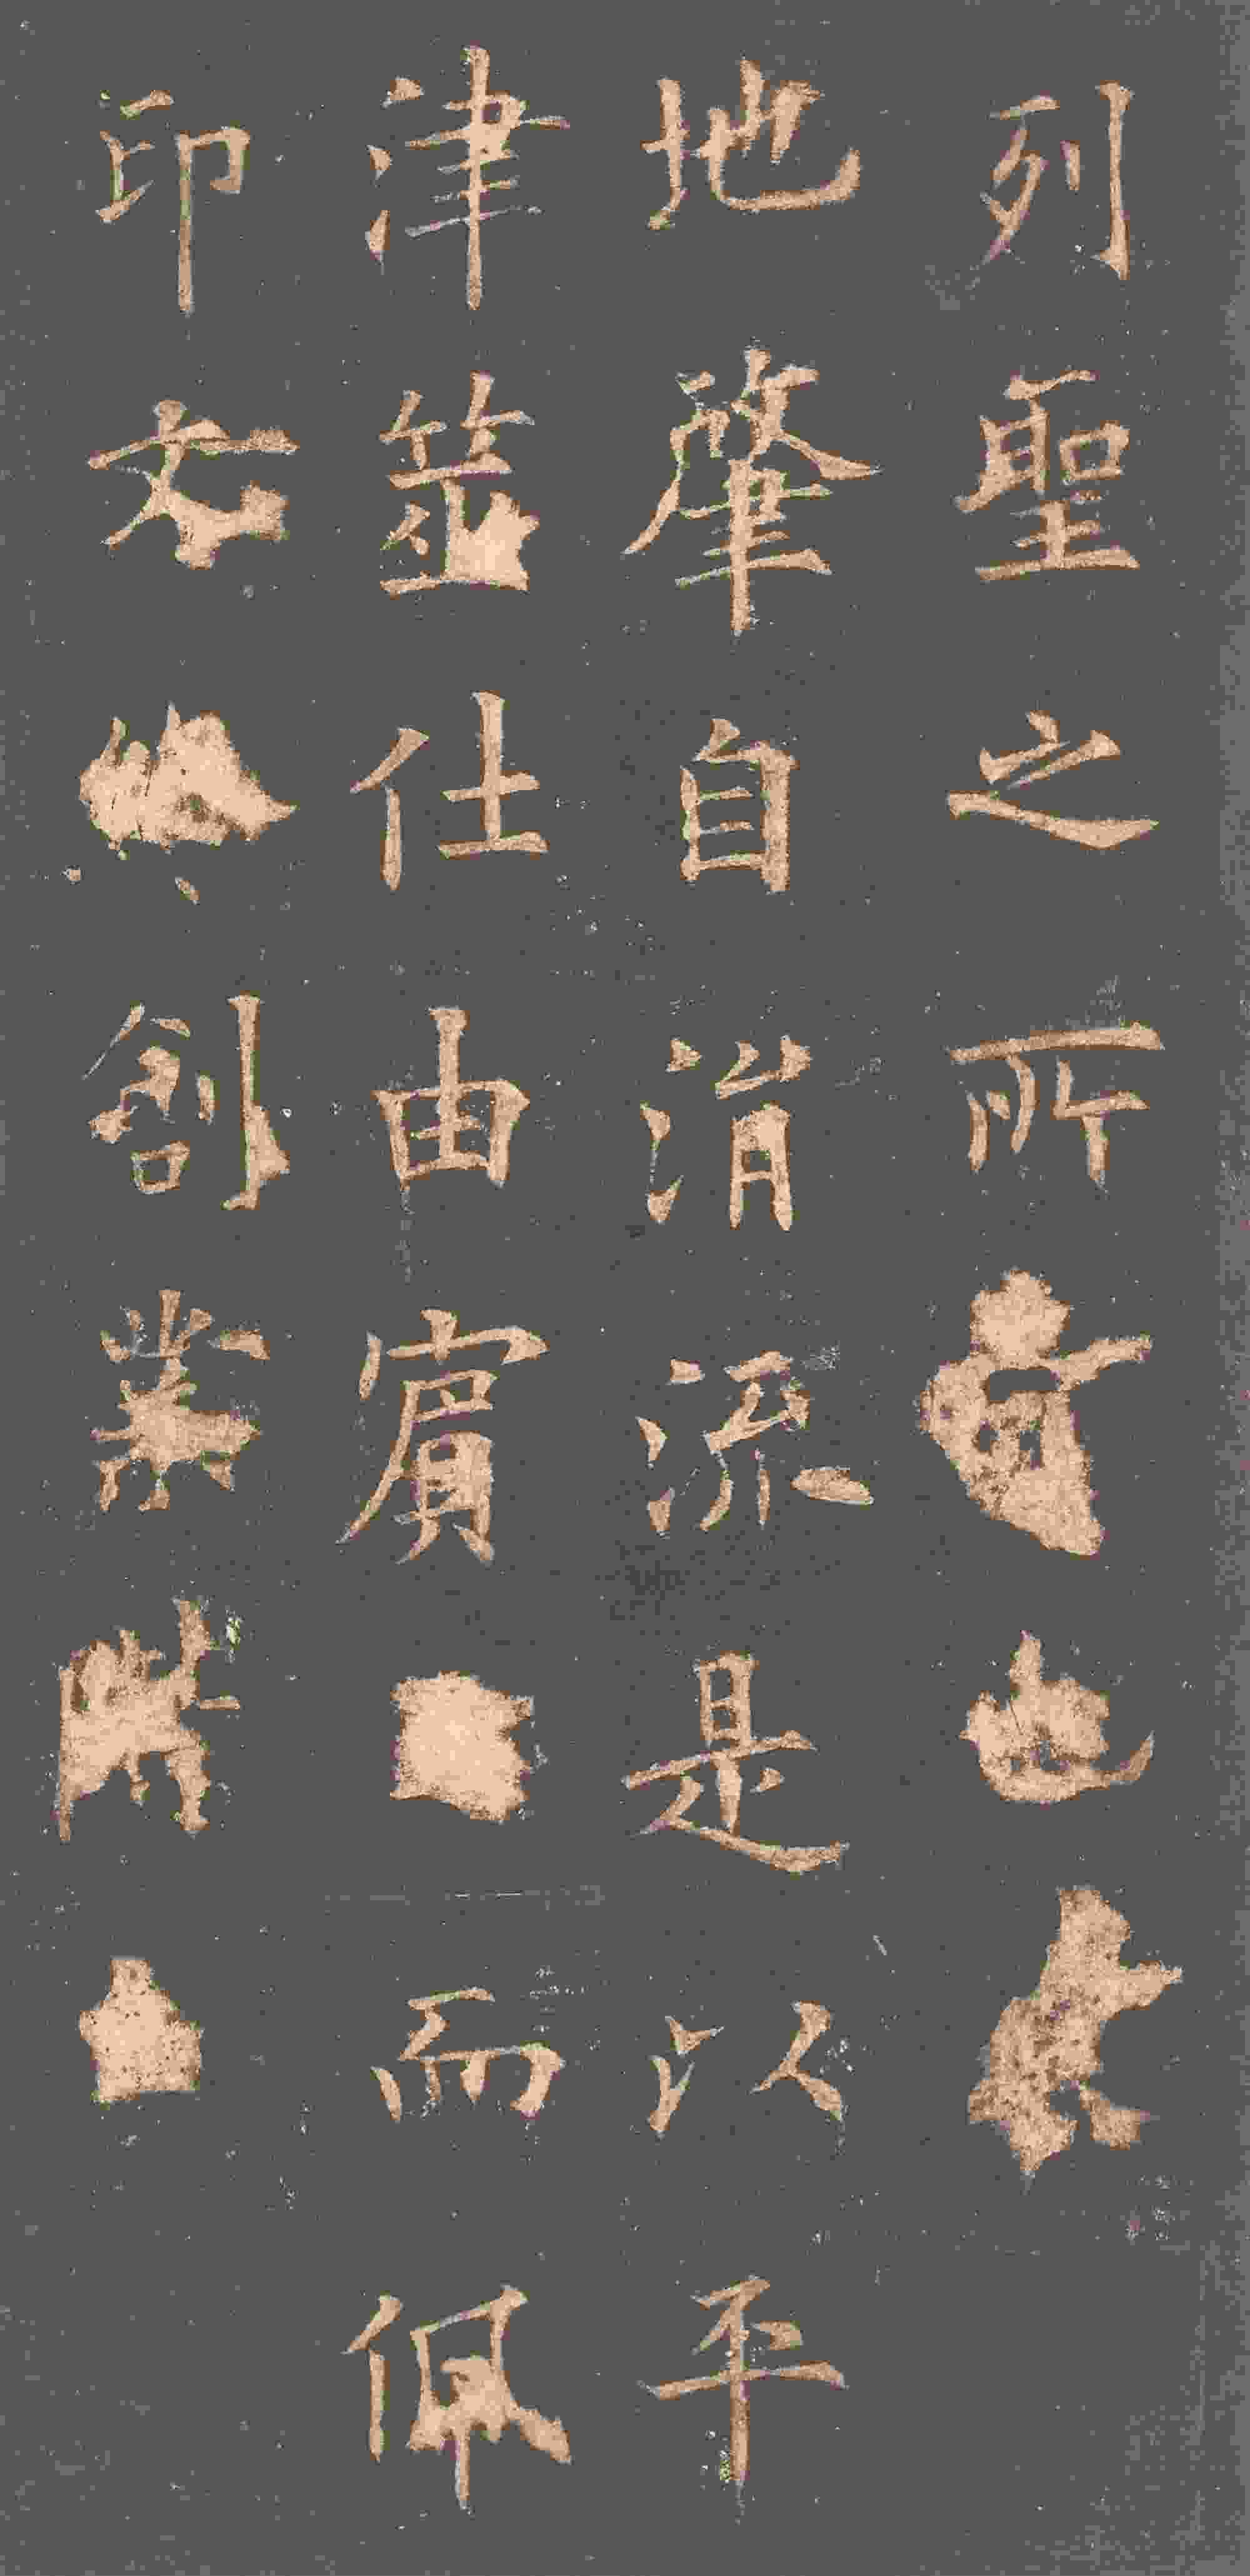 列聖之所也
地肇自涓流是以平
津筮仕由賓而佩
印文終創業